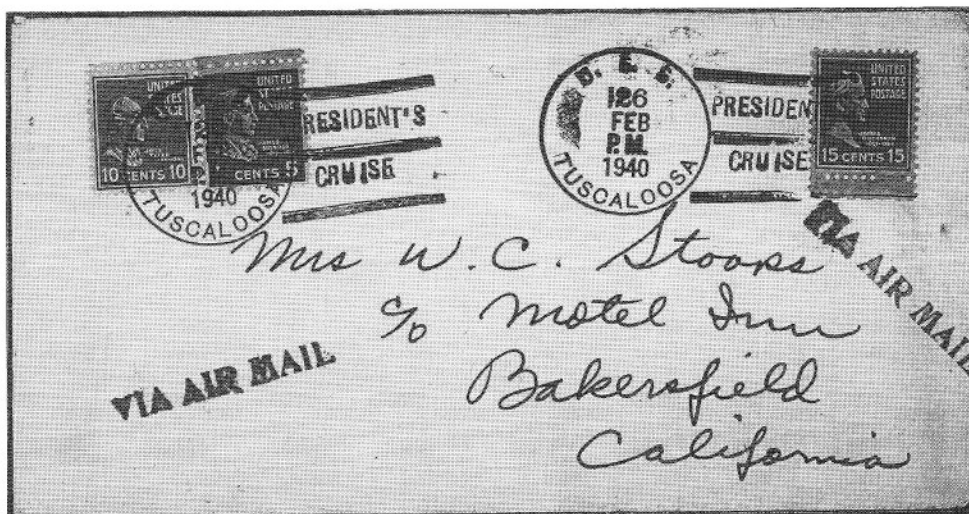 UNITED STATES POSTAGE
10 CENTS 10
UNITED STATES POSTAGE
CENTS 5
1940
TUSCALOOSA
RESIDENT'S
CRUISE
U. S. S.
126
FEB
P.M.
1940
TUSCALOOSA
PRESIDEN
CRUISE
UNITED
STATES
POSTAGE
15 CENTS 15
Mrs W. C. Stoops
c/o Motel Inn
Bakersfield
California
VIA AIR MAIL
VIA AIR MAIL